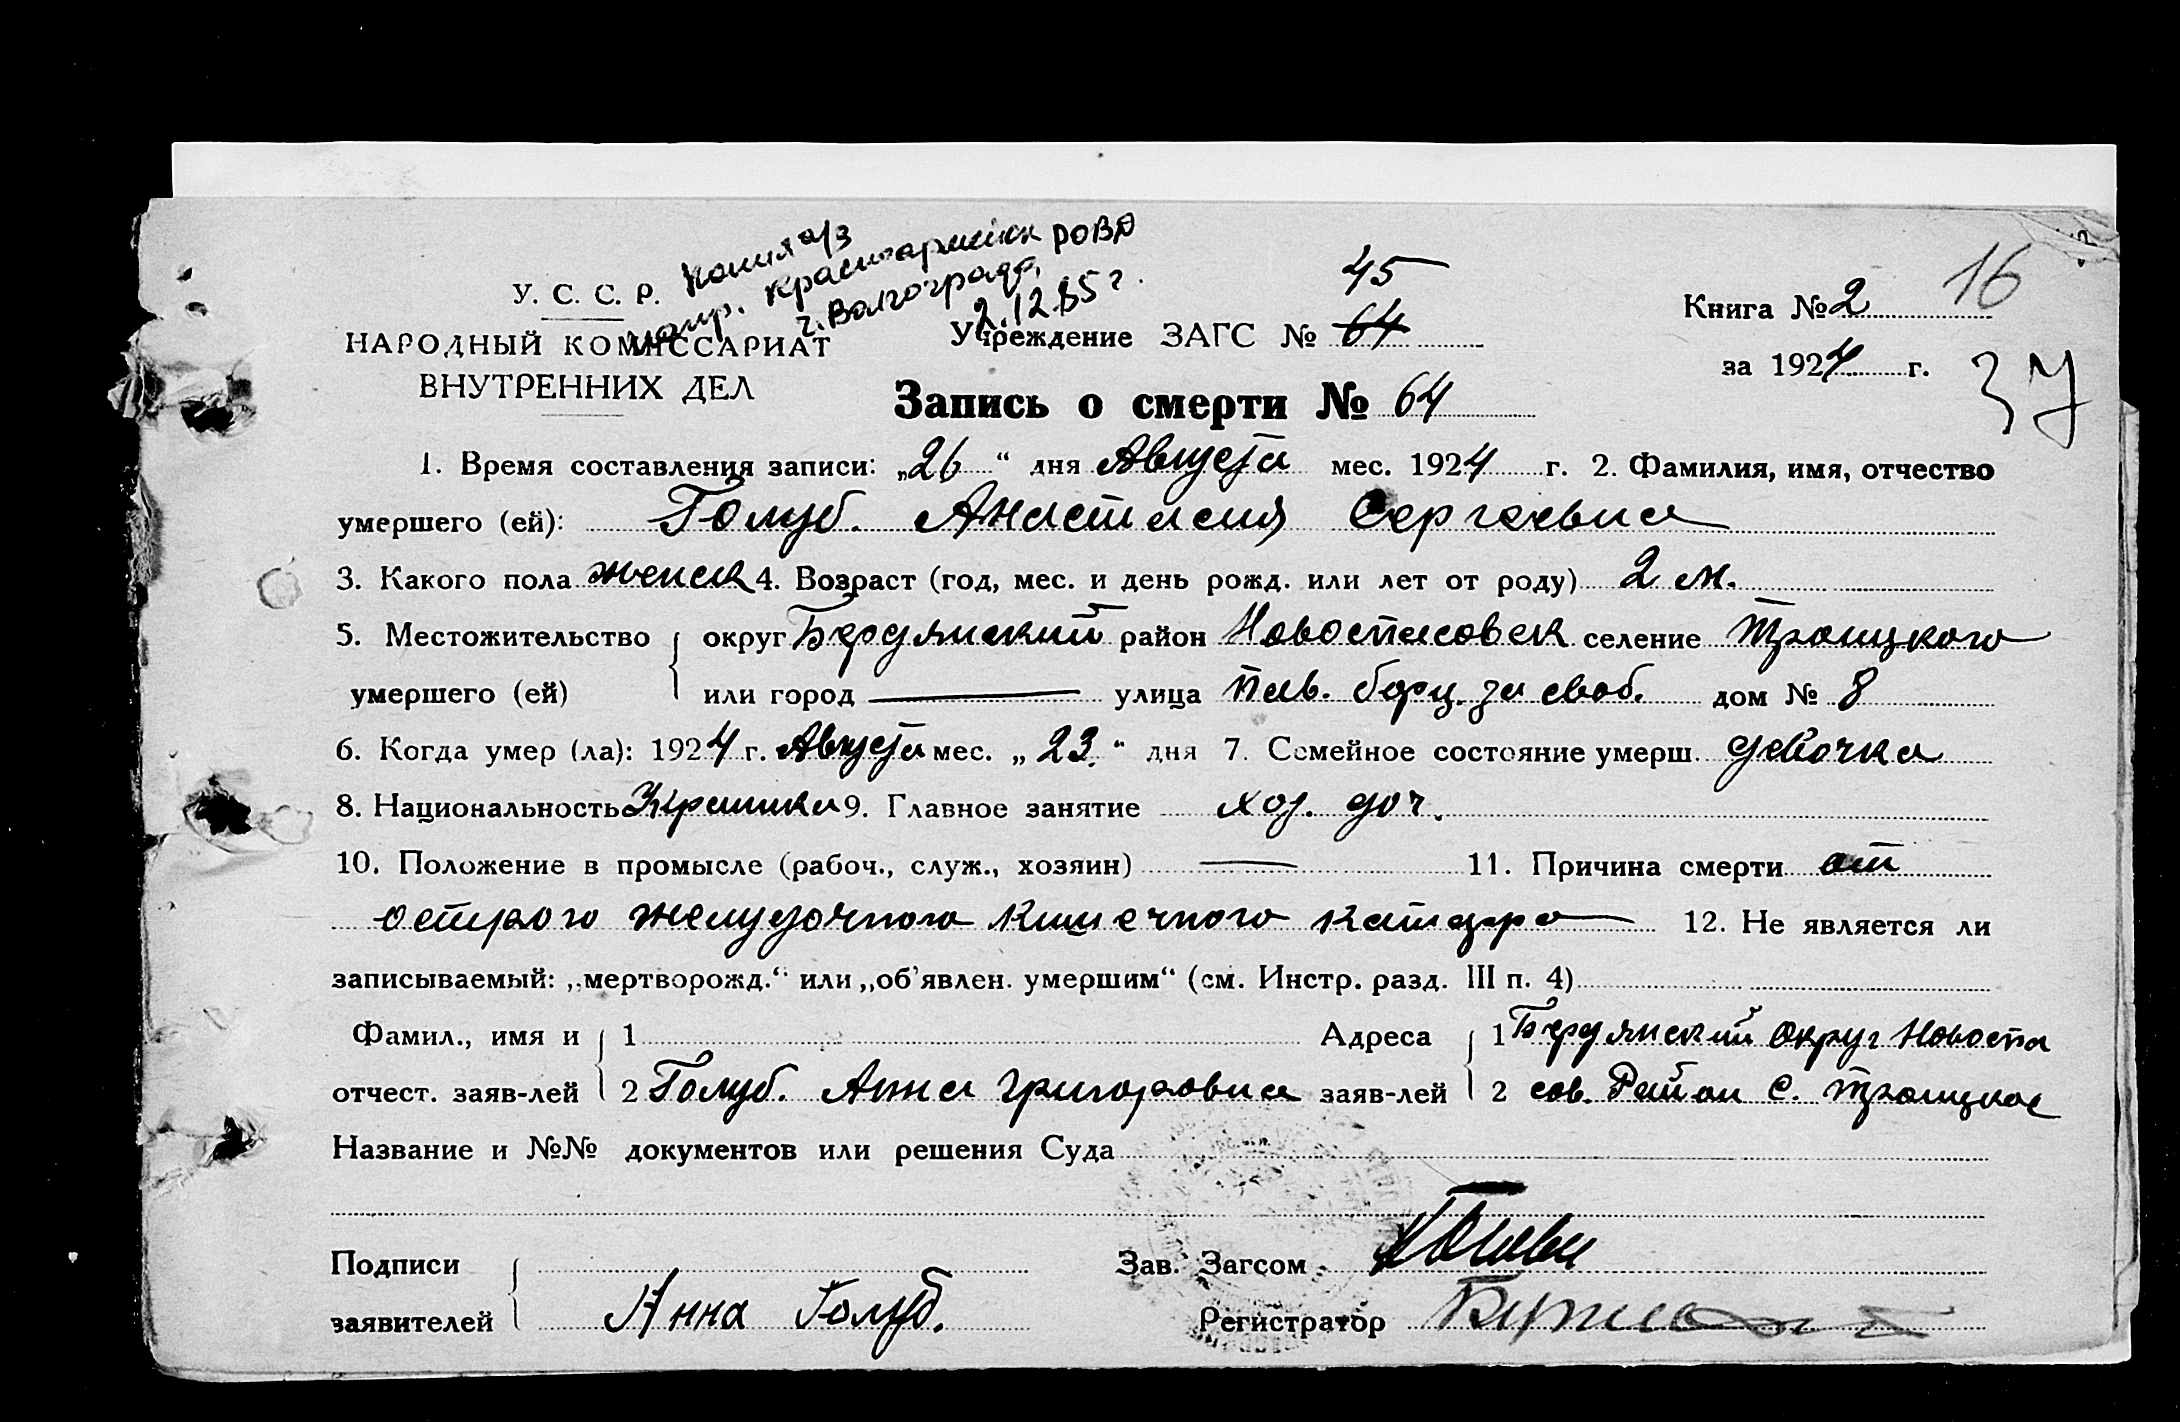 Копия а/з
напр. Красноармейск РОВД
г. Волгограда
2.12.85 г.
16
45
У. С. С. Р.
Книга № 2
Учреждение ЗАГС № 64
НАРОДНЫЙ КОМИССАРИАТ
за 1924 г.
37
ВНУТРЕННИХ ДЕЛ
Запись о смерти № 64
1. Время составления записи: „26“ дня Августа мес. 1924 г. 2. Фамилия, имя, отчество
умершего (ей): Голуб. Анастасия Сергеевна
3. Какого пола женск 4. Возраст (год, мес. и день рожд. или лет от роду) 2 м.
5. Местожительство округ Бердянский район Новоспасовск селение Троицкого
умершего (ей) или город — улица Пав. борц. за своб. дом № 8
6. Когда умер (ла): 1924 г. Августа мес. „23.“ дня 7. Семейное состояние умерш. девочка
8. Национальность Украинка 9. Главное занятие хоз. доч.
10. Положение в промысле (рабоч., служ., хозяин) — 11. Причина смерти от
острого желудочного кишечного катара 12. Не является ли
записываемый: „мертворожд.“ или „об'явлен. умершим“ (см. Инстр. разд. III п. 4)
Фамил., имя и 1 Адреса 1 Бердянский Округ Новоспа
отчест. заяв-лей 2 Голуб. Анна Григоровна заяв-лей 2 сов. Район С. Троицкое
Название и №№ документов или решения Суда
Подписи Зав. Загсом
заявителей Анна Голуб. Регистратор